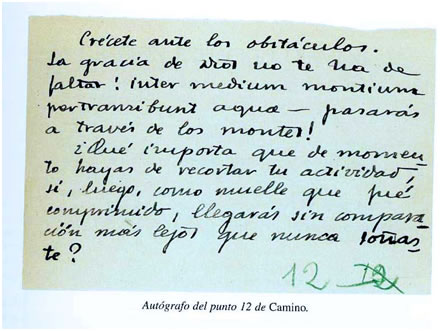 Crécete ante los obstáculos.
La gracia de Dios no te ha de
faltar: inter medium montium
pertransibunt aquæ — pasarás
a través de los montes!
¿Qué importa que de momen-
to hayas de recortar tu actividad,
si, luego, como muelle que fué
comprimido, llegarás sin compara-
ción más lejos que nunca soñas-
te?
12 12
Autógrafo del punto 12 de Camino.